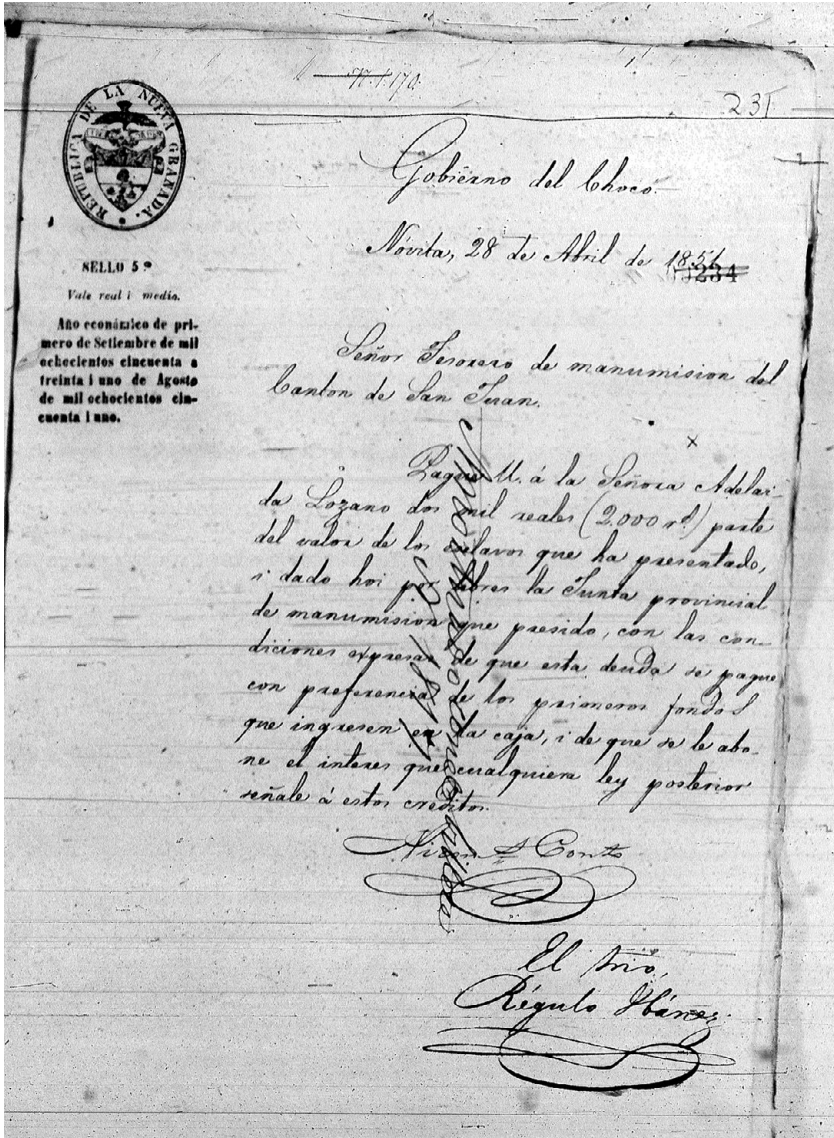 N.º 170.
231
REPUBLICA DE LA NUEVA GRANADA.
SELLO 5º
Vale real i medio.
Año económico de pri-
mero de Setiembre de mil
ochocientos cincuenta a
treinta i uno de Agosto
de mil ochocientos cin-
cuenta i uno.
Gobierno del Chocó.
Nóvita, 28 de Abril de 1851
234
Señor Tesorero de manumision del
Canton de San Juan.
Pague U. á la Señora Adelai-
da Lozano dos mil reales (2.000 rs) parte
del valor de los esclavos que ha presentado,
i dado hoi por libres la Junta provincial
de manumision que presido, con las con-
diciones expresas de que esta deuda se pague
con preferencia de los primeros fondos
que ingresen en la caja, i de que se le abo-
ne el interes que cualquiera ley posterior
señale á estos creditos.
Conto
El srio,
Régulo Ibánez